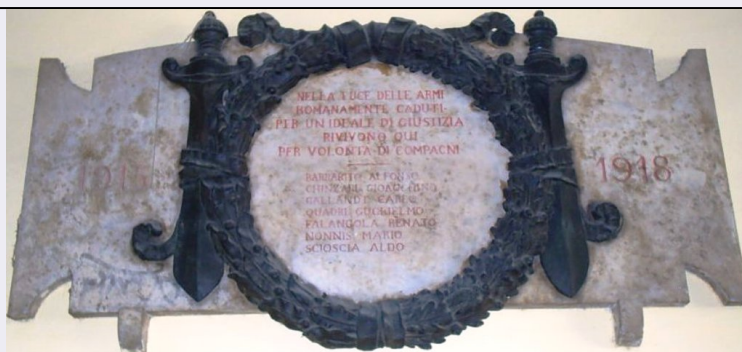 NELLA LUCE DELLE ARMI
ROMANAMENTE CADUTI
PER UN IDEALE DI GIUSTIZIA
RIVIVONO QUI
PER VOLONTA DI COMPAGNI
ALFONSO
GALLANDI CARLO
QUADRI GUGLIELMO
FALANGOLA RENATO
NONNIS MARIO
SCIOSCIA ALDO
1918